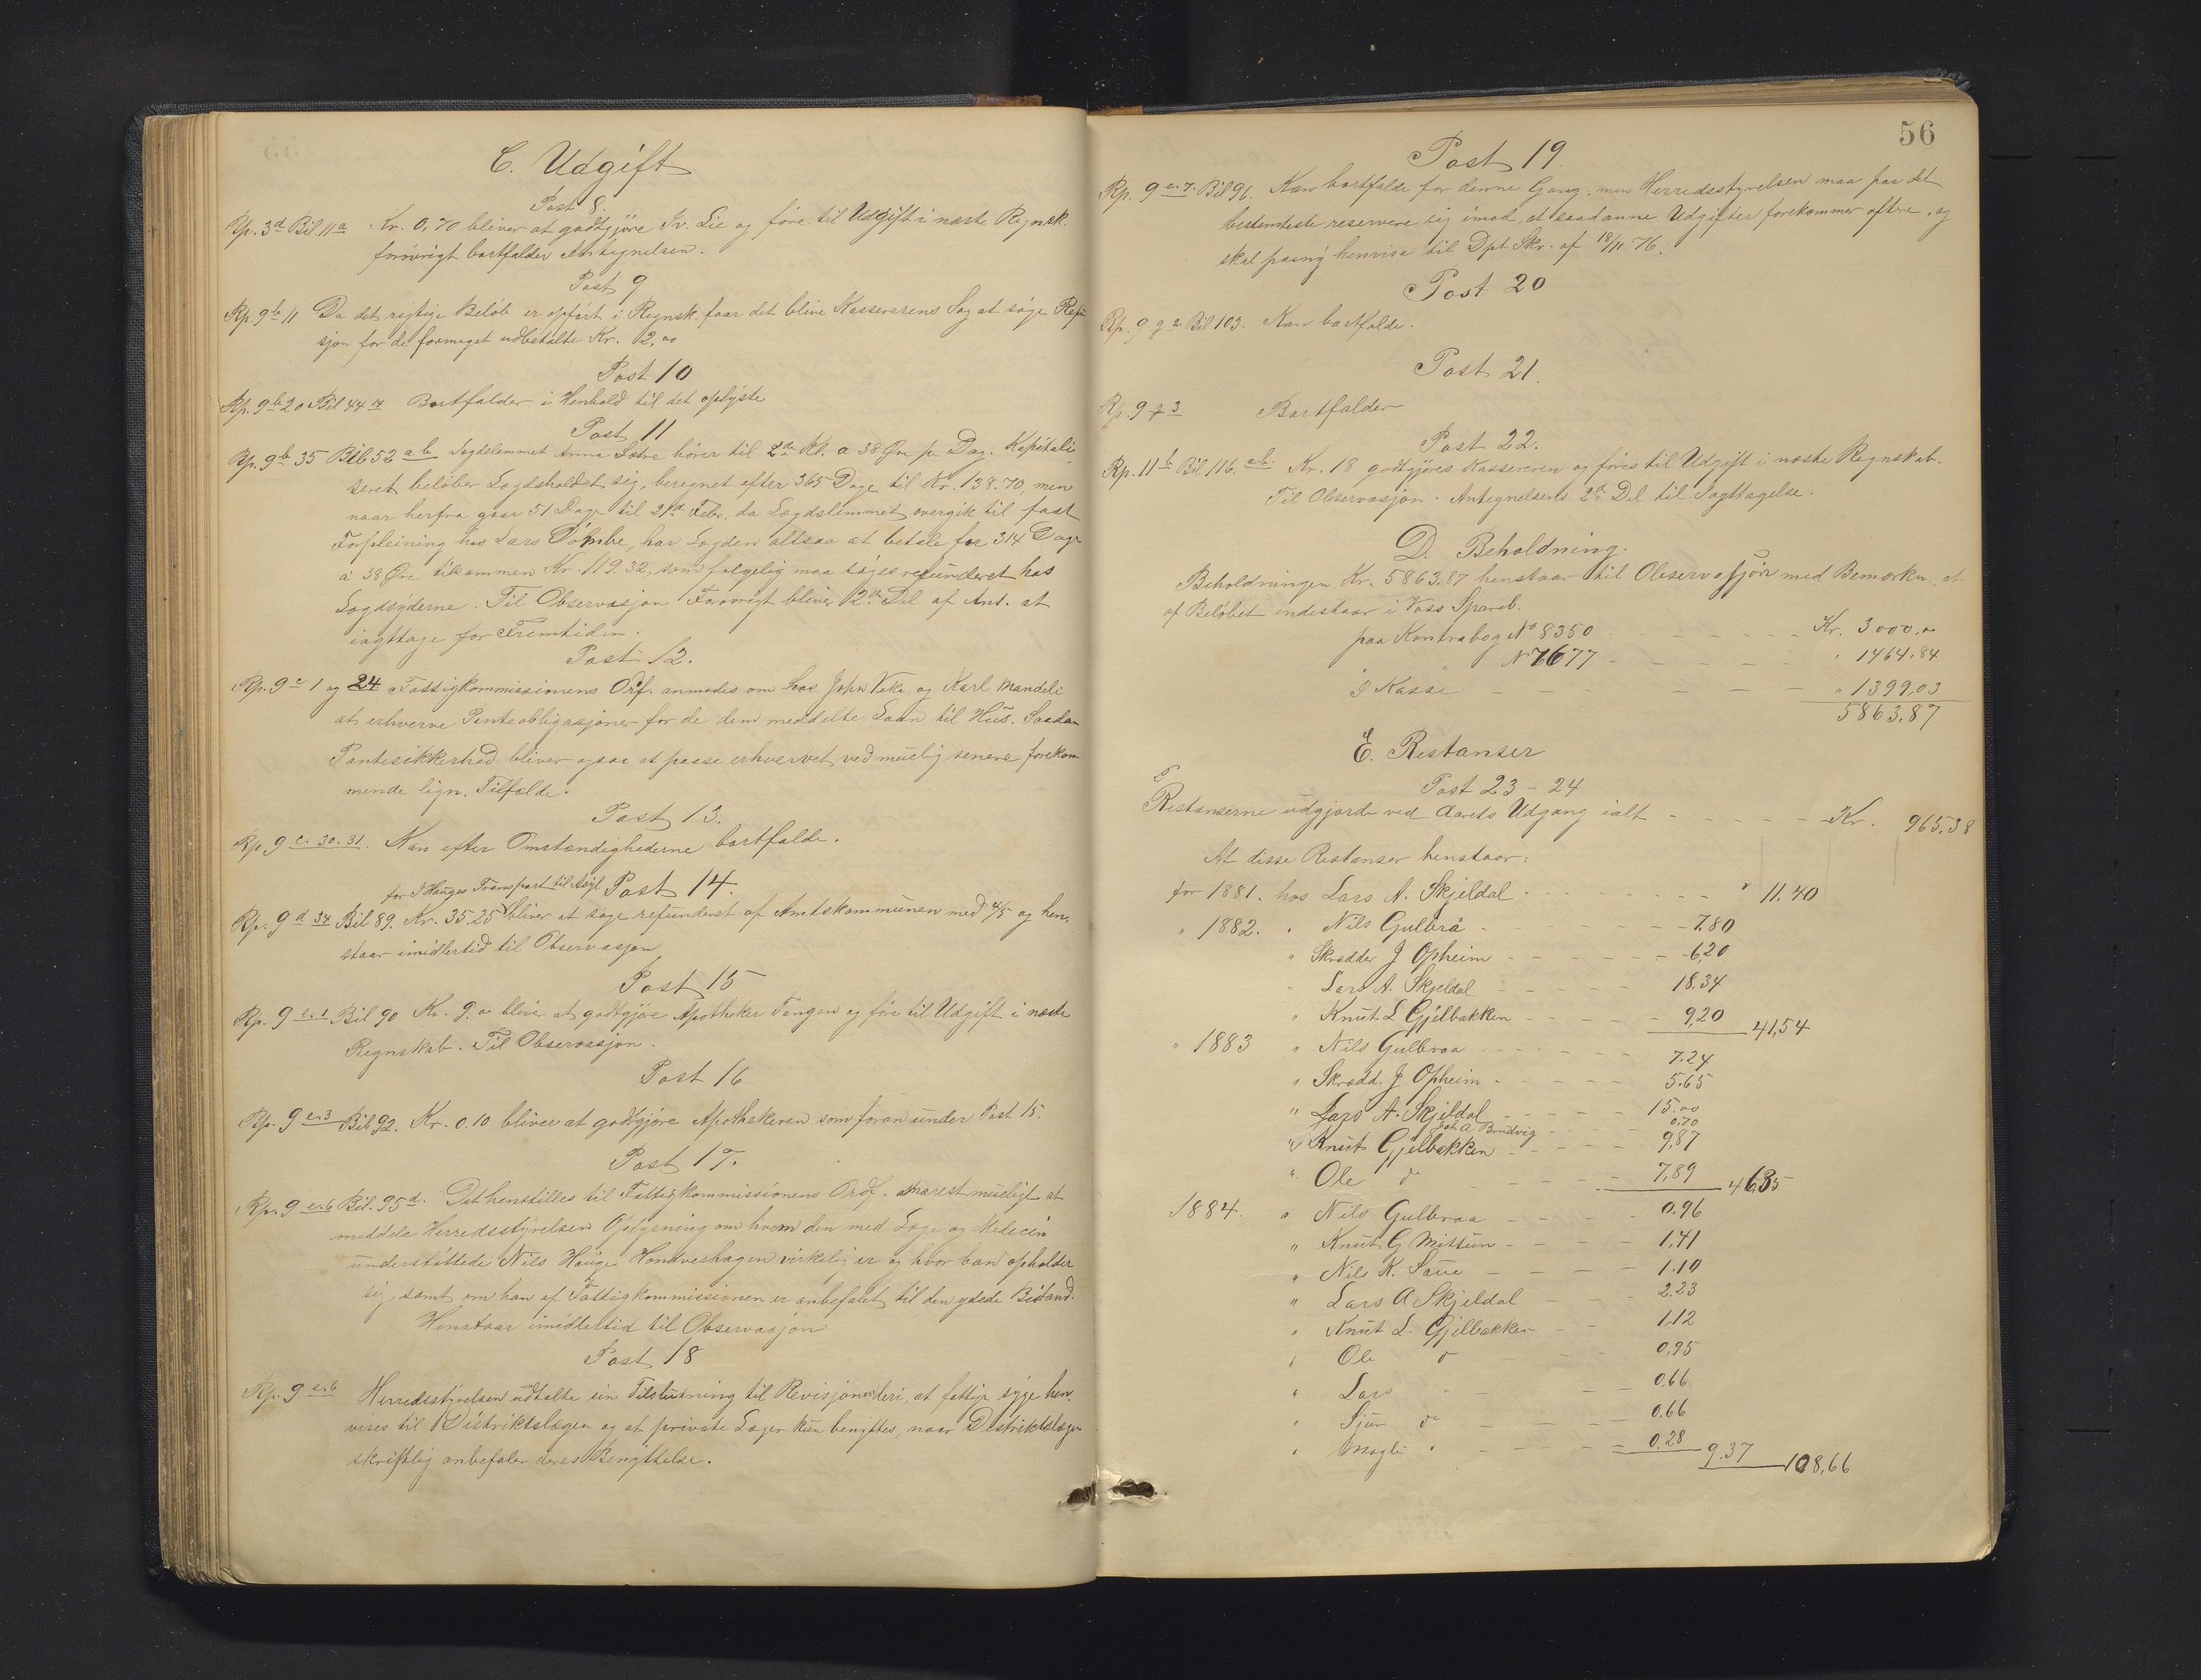 C. Udgift
Post 8.
Rp. 3d Bil 11a Kr. 0,70 bliver at godtgjøre Iv. Lie og føre til Udgift i næste Regnsk.
forøvrigt bortfalder Antegnelsen.
Post 9
Rp. 9b 11 Da det rigtige Beløb er opført i Regnsk. faar det blive Kassererens Sag at søge Refu
sjon for de formeget udbetalte Kr. 2,00
Post 10
Rp. 9b 20 Bil 44 Bortfalder i Henhold til det oplyste
Post 11
Rp. 9b 35 Bil 52 ab Lægdslemmet Anna Sætre hører til 2den Kl. a 38 Øre pr Dag. Kapitali
seret beløber Lægdsholdet sig, beregnet efter 365 Dage til Kr. 138.70, men
naar herfra gaar 51 Dage til 21d Febr. da Lægdslemmet overgik til fast
Forpleining hos Lars Dømbe, har Lægden altsaa at betale for 314 Dage
a 38 Øre tilsammen Kr. 119.32, som følgelig maa søges refunderet hos
Lægdsyderne. Til Observasjon Forøvrigt bliver 2den Del af Ant. at
iagttage for Fremtiden.
Post 12.
Rp. 9c 1 og 24 Fattigkommissionens Ordf. anmodes om hos John Veke og Karl Mandeli
at erhverve Panteobligasjoner for de dem meddelte Laan til Hus. Saadan
Pantesikkerhed bliver ogsaa at paase erhvervet ved muelig senere forekom
mende lign. Tilfælde.
Post 13.
Rp 9 c. 30. 31. Kan efter Omstændighederne bortfalde.
for I Hauges Transport til Asyl Post 14.
Rp. 9 d 34 Bil 89. Kr. 35.25 bliver at søge refunderet af Amtskommunen med 4/5 og hen.
staar imidlertid til Observasjon
Post 15
Rp. 9 e. 1 Bil 90 Kr. 9.00 bliver at godtgjøre Apotheker Tangen og føre til Udgift i næste
Regnskab. Til Observasjon.
Post 16
Rp. 9 e. 3 Bil 92. Kr. 0.10 bliver at godtgjøre Apothekeren som foran under Post 15.
Post 17.
Rp. 9 e. 6 Bil. 95d. Det henstilles til Fattigkommissionens Ordf. snarest mueligt at
meddele Herredsstyrelsen Oplysning om hvem den med Læge og Medecin
understøttede Nils Hauge Hondveshagen virkelig er og hvor han opholder
sig, samt om han af Fattigkommissionen er anbefalet til den ydede Bistand.
Henstaar imidlertid til Observasjon
Post 18
Rp. 9 e. 6 Herredsstyrelsen udtalte sin Tilslutning til Revisjonen deri, at fattige syge hen.
vises til Distriktslægen og at private Læger kun benyttes, naar Distriktslægen
skriftlig anbefaler deres Benyttelse.
56
Post 19.
Rp. 9 e. 7. Bil 96. Kan bortfalde for denne Gang, men Herredsstyrelsen maa paa det
bestemteste reservere sig imod, at saadanne Udgifter forekommer oftere, og
skal paany henvise til Dpt Skr. af 18/11 76.
Post 20
Rp. 9 g 2 Bil 103. Kan bortfalde.
Post 21.
Rp. 9 g 3 Bortfalder
Post 22.
Rp. 11b Bil 116. a b. Kr. 18 godtgjøres Kassereren og føres til Udgift i næste Regnskab.
Til Observasjon. Antegnelsens 2d Del til Iagttagelse.
D. Beholdning.
Beholdningen Kr. 5863,87 henstaar til Observasjon med Bemærkn. at
af Beløbet indestaar i Voss Spareb.
paa Kontrabog No 8350 Kr. 3000,00
" " No 7677 " 1464,84
I Kasse " 1399,03
5863,87
E. Restanser
Post 23 - 24
Restanserne udgjorde ved Aarets Udgang ialt Kr. 965,38
Af disse Restanser henstaar:
for 1881. hos Lars A. Skjeldal " 11.40
" 1882. " Nils Gulbraa 7.80
" Skrædder J Opheim 6,20
" Lars A. Skjeldal 18.34
" Knut L Gjelbakken 9,20 41,54
" 1883 " Nils Gulbraa 7.24
" Skrædd. J Opheim 5.65
" Lars A. Skjeldal 15.00
Joh A Brudvig 0.70
" Knut Gjelbakken 9,87
" Ole do 7,89 46,35
1884. " Nils Gulbraa 0.96
" Knut G Mittun 1,41
" Nils K. Saue 1.10
" Lars A Skjeldal 2.23
" Knut L. Gjelbakken 1,12
" Ole do 0,95
" Lars " 0,66
" Sjur do 0.66
" Magli " 0.28 9.37 108,66